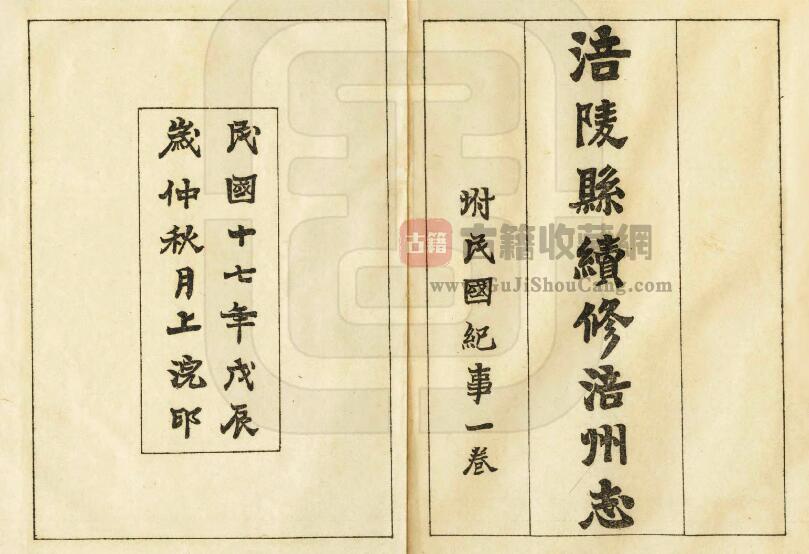 涪陵縣續修涪州志
坿民國紀事一卷
民國十七年戊辰
歲仲秋月上浣印
古籍
古籍收藏網
www.GuJiShouCang.com